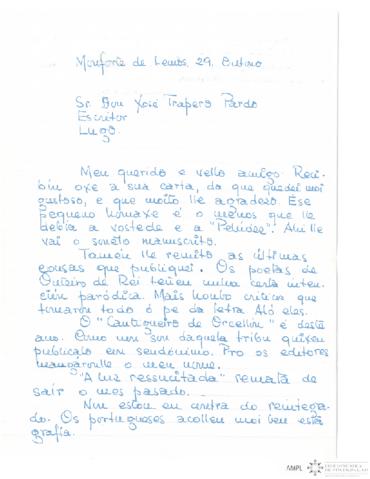 Monforte de Lemos, 29, Outono
Sr. Don Xosé Trapero Pardo
Escritor
Lugo.
Meu querido e vello amigo: Reci-
bín oxe a sua carta, da que quedei moi
gustoso, e que moito lle agradezo. Ese
pequeno homaxe é o menos que lle
debía a vostede e a "Pelúdez". Ahí lle
vai o soneto manuscrito.
Tamén lle remito as últimas
cousas que publiquei. Os poetas de
Outeiro de Rei teñen unha certa inten-
ción paródica. Mais houbo críticos que
tomaron todo ó pé da letra. Aló eles.
O "Cantigueiro de Orcellón" é deste
ano. Como un son daquela tribu quixen
publicalo en seudónimo. Pro os editores
o meu nome.
"A luz ressucitada" remata de
sair o mes pasado.
Non estou en contra do reintegra-
do. Os portugueses acollen moi ben esta
grafía.
AMPL